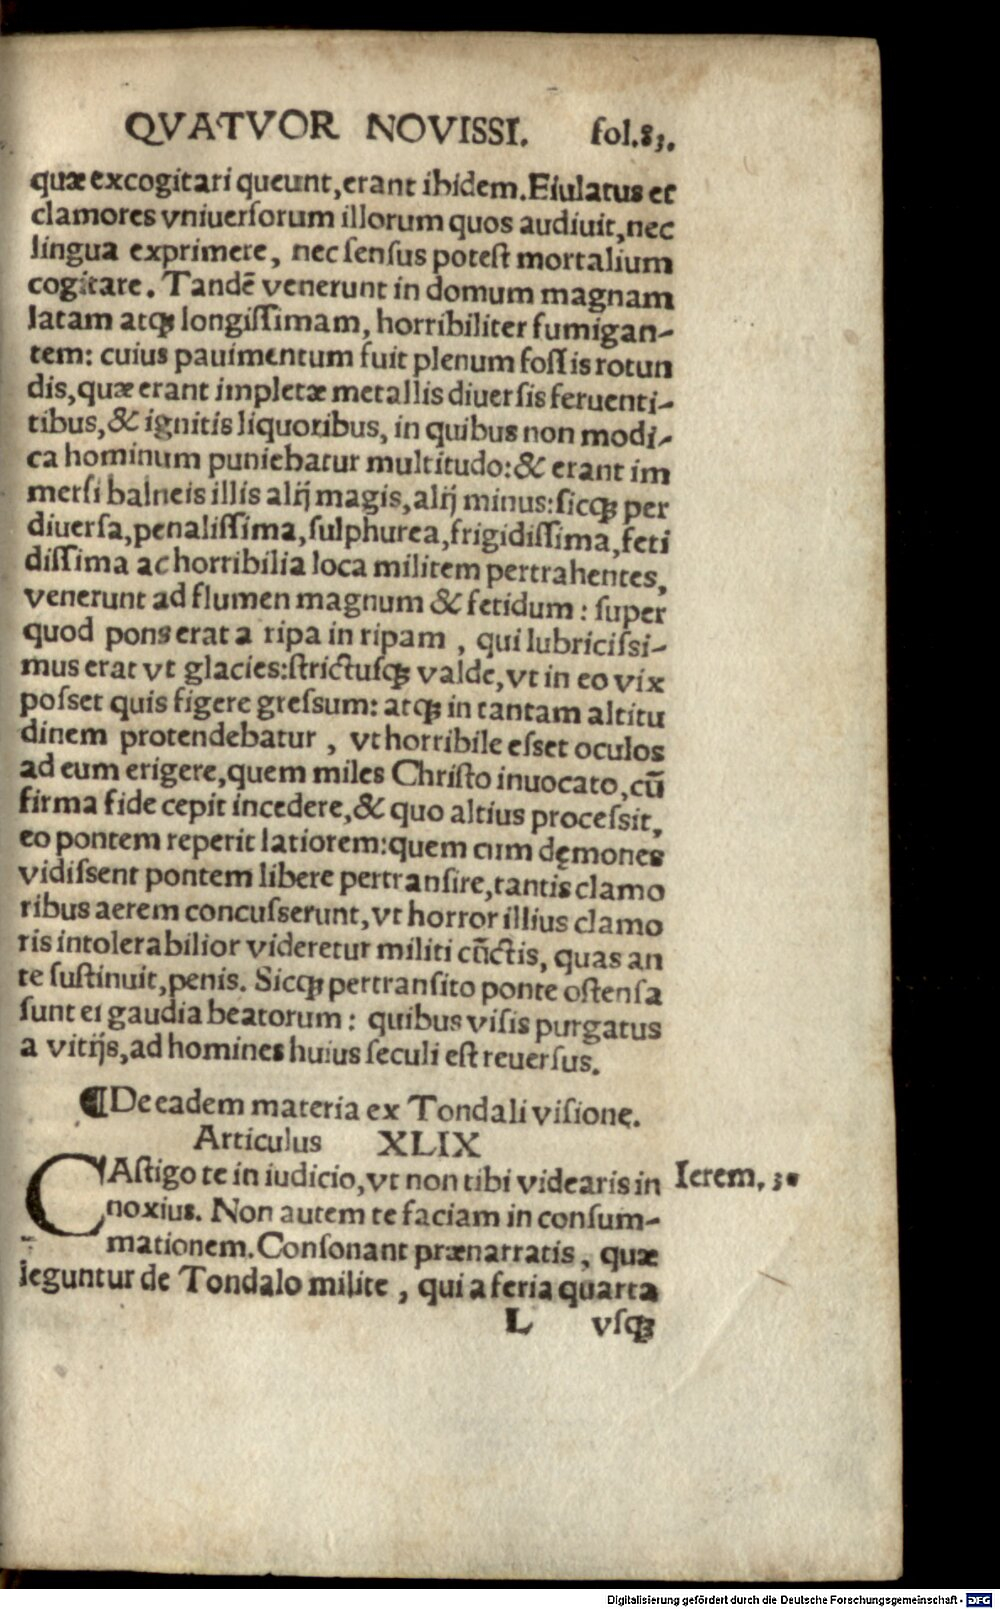 QVATVOR NOVISSI. fol.83.
quæ excogitari queunt, erant ibidem. Eiulatus et
clamores vniuerſorum illorum quos audiuit, nec
lingua exprimere, nec ſenſus poteſt mortalium
cogitare. Tandē venerunt in domum magnam
latam atqꝫ longiſſimam, horribiliter fumigan-
tem: cuius pauimentum fuit plenum foſſis rotun
dis, quæ erant impletæ metallis diuerſis feruenti-
tibus, & ignitis liquoribus, in quibus non modi-
ca hominum puniebatur multitudo: & erant im
merſi balneis illis alij magis, alij minus: ſicqꝫ per
diuerſa, penaliſſima, ſulphurea, frigidiſſima, feti
diſſima ac horribilia loca militem pertrahentes,
venerunt ad flumen magnum & fetidum: ſuper
quod pons erat a ripa in ripam, qui lubriciſsi-
mus erat vt glacies: ſtrictuſqꝫ valde, vt in eo vix
poſset quis figere greſsum: atqꝫ in tantam altitu
dinem protendebatur, vt horribile eſset oculos
ad eum erigere, quem miles Chriſto inuocato, cū
firma fide cepit incedere, & quo altius proceſsit,
eo pontem reperit latiorem: quem cum dęmones
vidiſsent pontem libere pertranſire, tantis clamo
ribus aerem concuſserunt, vt horror illius clamo
ris intolerabilior videretur militi cūctis, quas an
te ſuſtinuit, penis. Sicqꝫ pertranſito ponte oſtenſa
ſunt ei gaudia beatorum: quibus viſis purgatus
a vitijs, ad homines huius ſeculi eſt reuerſus.
¶De eadem materia ex Tondali viſione.
Articulus XLIX
CAſtigo te in iudicio, vt non tibi videaris in Ierem. 3.
noxius. Non autem te faciam in conſum-
mationem. Conſonant prænarratis, quæ
leguntur de Tondalo milite, qui a feria quarta
L vſqꝫ
Digitalisierung gefördert durch die Deutsche Forschungsgemeinschaft - DFG